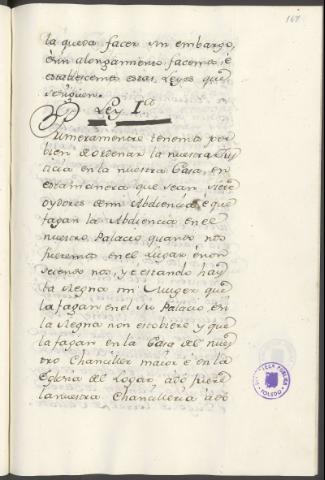 168
la queda facer sin embargo,
è sin alongamiento, facemos, è
establescemos estas Leyes que
se siguen.
Ley I.ª
Primeramente tenemos por
bien de ordenar la nuestra Jus
ticia en la nuestra Casa, en
esta manera que sean siete
oydores de mi Abdiencia, è que
fagan la Abdiencia en el
nuestro Palacio quando nos
fueremos en el lugar è non
seiendo nos, y estando hay
la Regna mi Muger que
la fagan en el su Palacio è si
la Regna non estobiere y que
la fagan en la Casa del nues
tro Chanciller maior è en la
Eglesia del Logar, adò fuere
la nuestra Chancilleria adò
TOLEDO